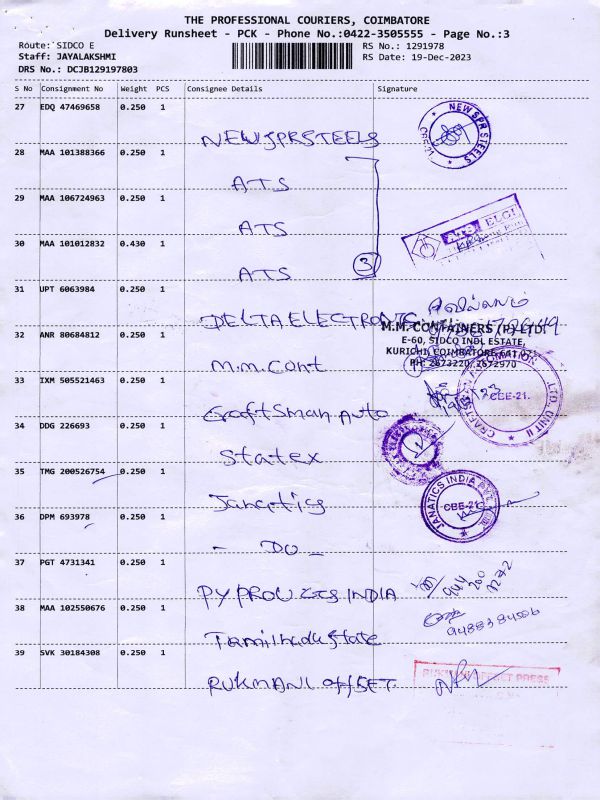 THE PROFESSIONAL COURIERS, COIMBATORE
Delivery Runsheet - PCK - Phone No.:0422-3505555 - Page No.:3
Route: SIDCO E
RS No.: 1291978
Staff: JAYALAKSHMI
RS Date: 19-Dec-2023
DRS No.: DCJB129197803
S No Consignment No Weight PCS Consignee Details Signature
27 EDQ 47469658 0.250 1
NEWSPRSTEELS
NEWSPR STEELS
CBE-21
28 MAA 101388366 0.250 1
ATS
29 MAA 106724963 0.250 1
ATS
ATS ELGI
30 MAA 101012832 0.430 1
ATS
3
31 UPT 6063984 0.250 1
DELTA ELECTRONIC
32 ANR 80684812 0.250 1
M.M.Cont
M.M. CONTAINERS (P) LTD
E-60, SIDCO INDL ESTATE,
KURICHI, COIMBATORE-641 021
PH: 2673220, 2672970
33 IXM 505521463 0.250 1
Craftsman Auto
CBE-21.
UNIT II
34 DDG 226693 0.250 1
Statex
35 TMG 200526754 0.250 1
Janatics
JANATICS INDIA PVT. LTD.
CBE-21
36 DPM 693978 0.250 1
- DO -
37 PGT 4731341 0.250 1
INDIA
944
200
1272
38 MAA 102550676 0.250 1
Tamilnadu State
39 SVK 30184308 0.250 1
RUKMANI offSET.
RUKMANI OFFSET PRESS